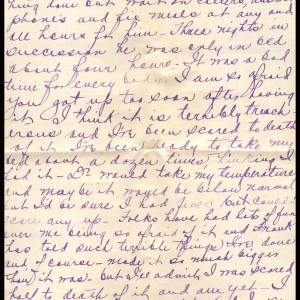 thing done but wait on callers, answer
phones and fix meals at any and
all hours for fun - Three nights in
succession we was only in bed
about four hours - It was a bad
time for every body. I am so afraid
you got up too soon after having
it I think it is terribly treach
erous and I've been scared to death
of it. I've been ready to take my
bed about a dozen times, thinking I
had it - Dr would take my temperature
and maybe it would be below normal
but I'd be sure I had fever but could
any up - Folks have had lots of fun
over me being so afraid of it and Frank
has told such terrible things I've done
and of course made it so much bigger
than it was - but I'll admit I was scared
half to death of it and am yet - I